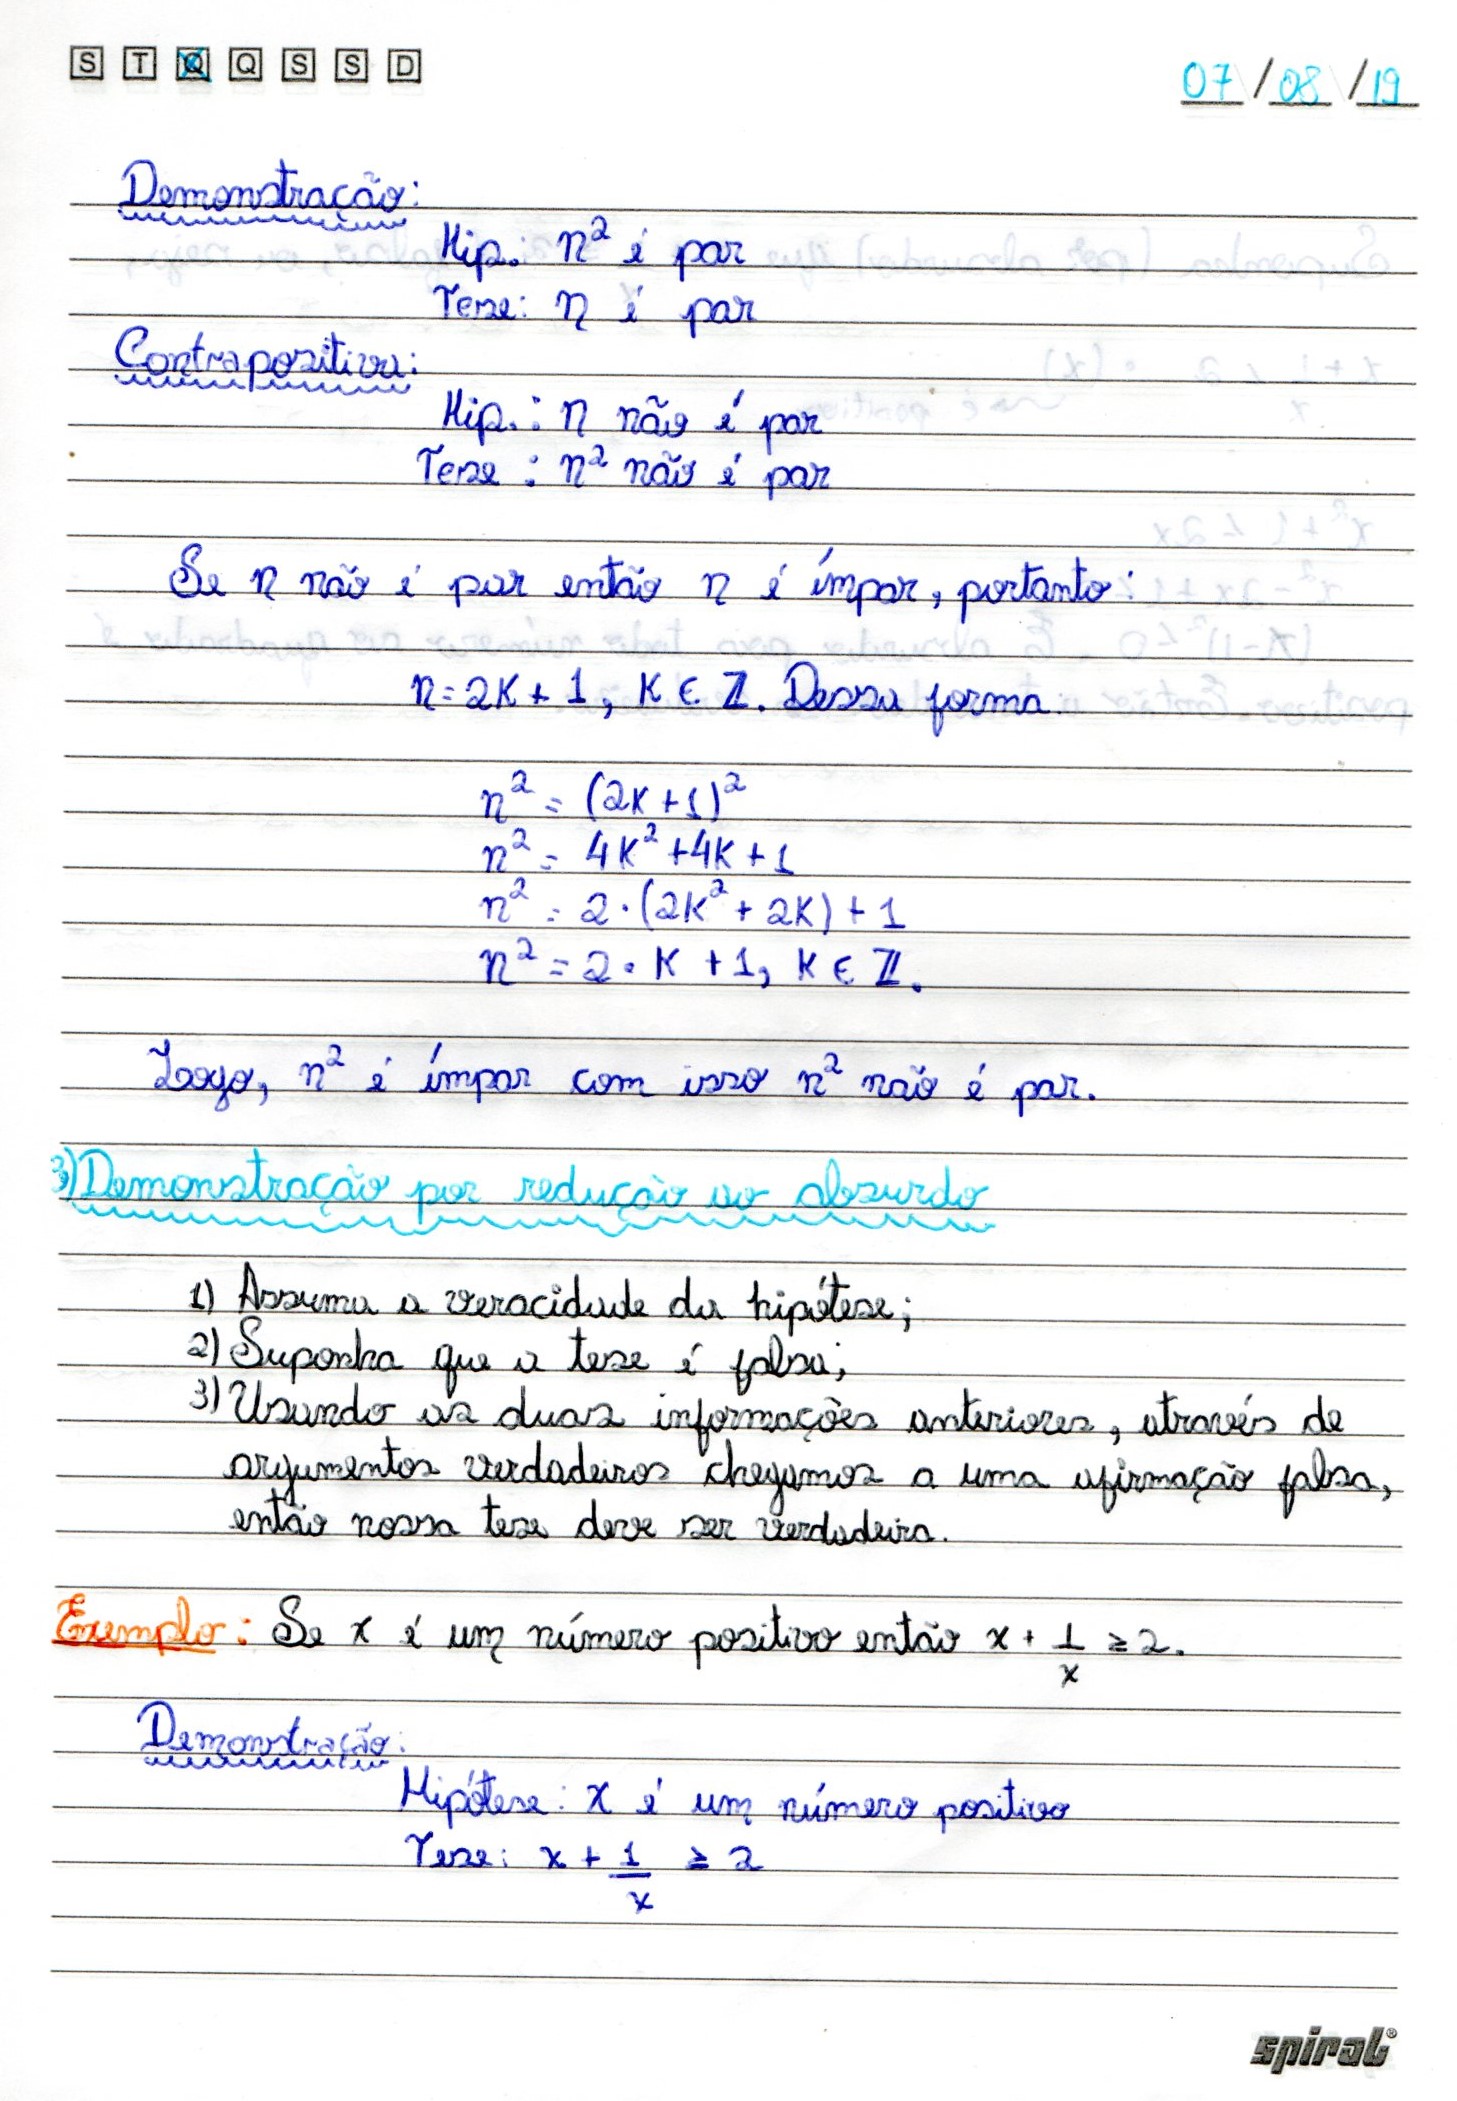 S T Q Q S S D
07/08/19
Demonstração:
Hip.: n² é par
Tese: n é par
Contrapositiva:
Hip.: n não é par
Tese: n² não é par
Se n não é par então n é ímpar, portanto:
n = 2K + 1, K ∈ ℤ. Dessa forma:
n² = (2K + 1)²
n² = 4K² + 4K + 1
n² = 2·(2K² + 2K) + 1
n² = 2·K + 1, K ∈ ℤ.
Logo, n² é ímpar com isso n² não é par.
3) Demonstração por redução ao absurdo
1) Assuma a veracidade da hipótese;
2) Suponha que a tese é falsa;
3) Usando as duas informações anteriores, através de
argumentos verdadeiros chegamos a uma afirmação falsa,
então nossa tese deve ser verdadeira.
Exemplo: Se x é um número positivo então x + 1/x ≥ 2.
Demonstração:
Hipótese: x é um número positivo
Tese: x + 1/x ≥ 2
spiral®